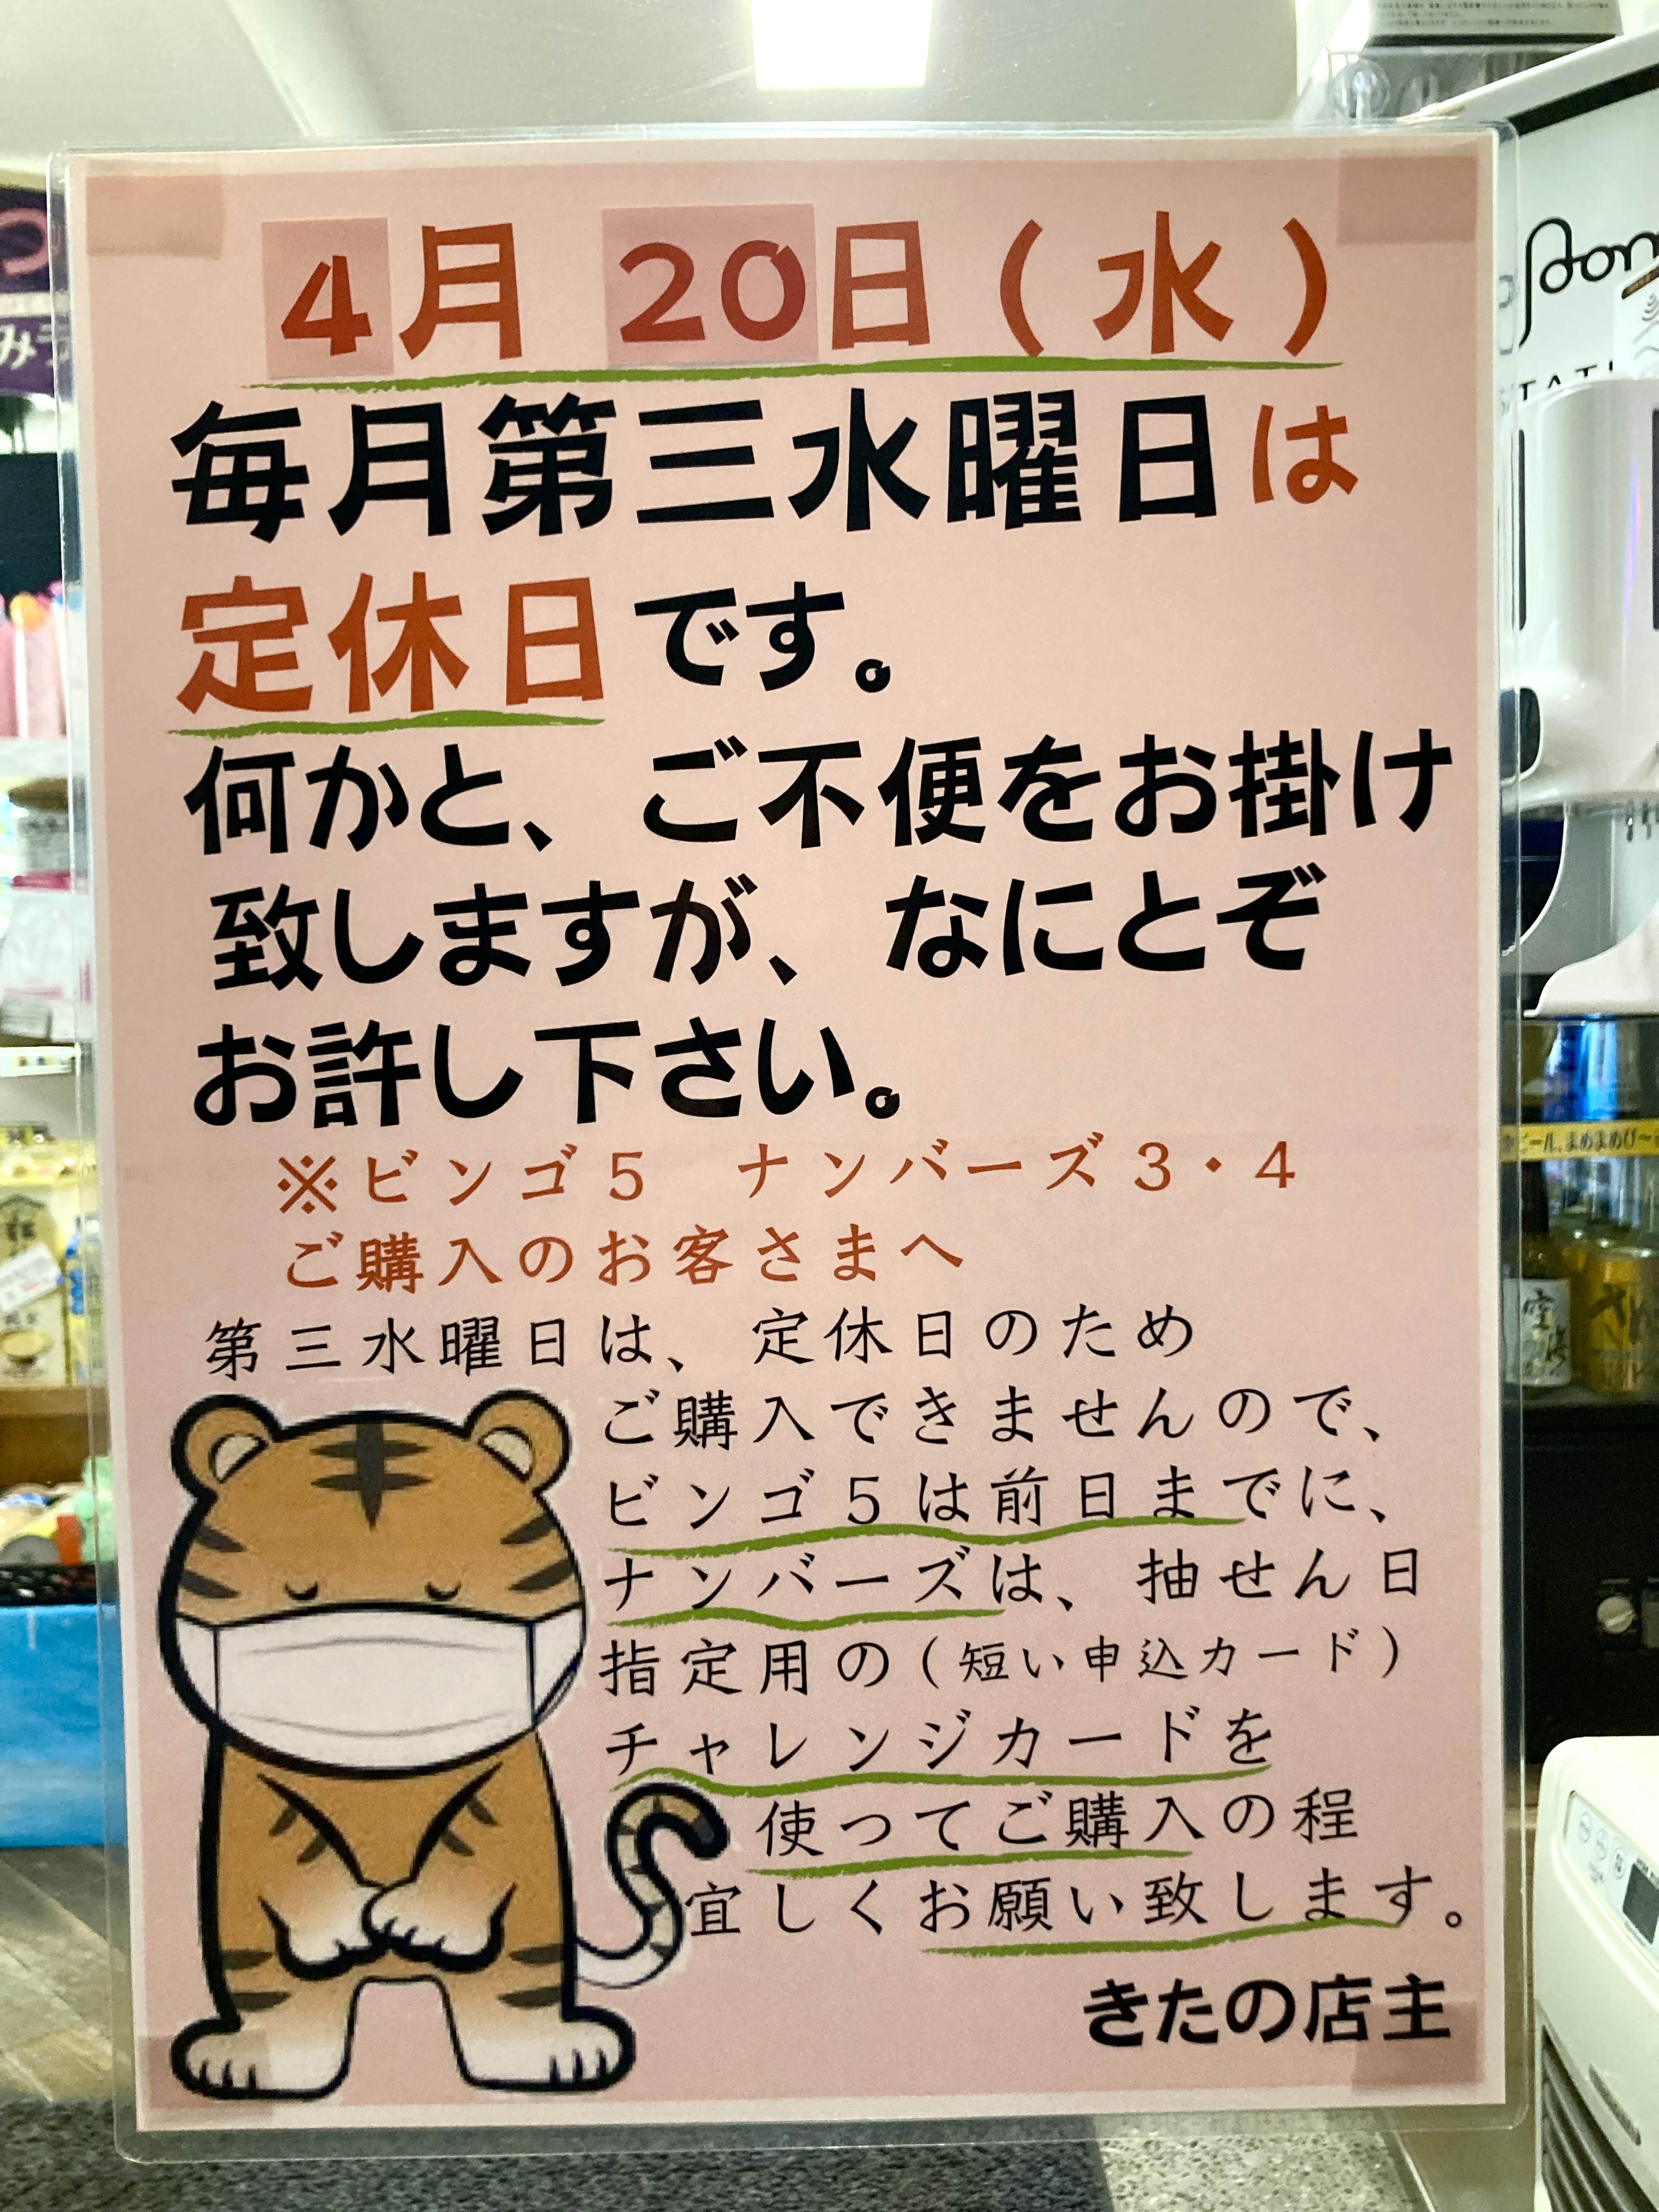 4月 20日(水)
毎月第三水曜日は
定休日です。
何かと、ご不便をお掛け
致しますが、なにとぞ
お許し下さい。
※ビンゴ5 ナンバーズ3・4
ご購入のお客さまへ
第三水曜日は、定休日のため
ご購入できませんので、
ビンゴ5は前日までに、
ナンバーズは、抽せん日
指定用の(短い申込カード)
チャレンジカードを
使ってご購入の程
宜しくお願い致します。
きたの店主